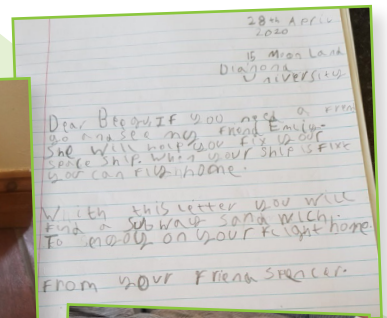 28th April
2020
15 Moon Land
Diagona
niversity
Dear Beegu If you need a
go and see my friend Emily.
She will help you fix your
space ship. when your ship is fixt
you can fly home.
With this letter you will
find a subway sand wich,
To enjoy on your flight home.
From your friend spencer.